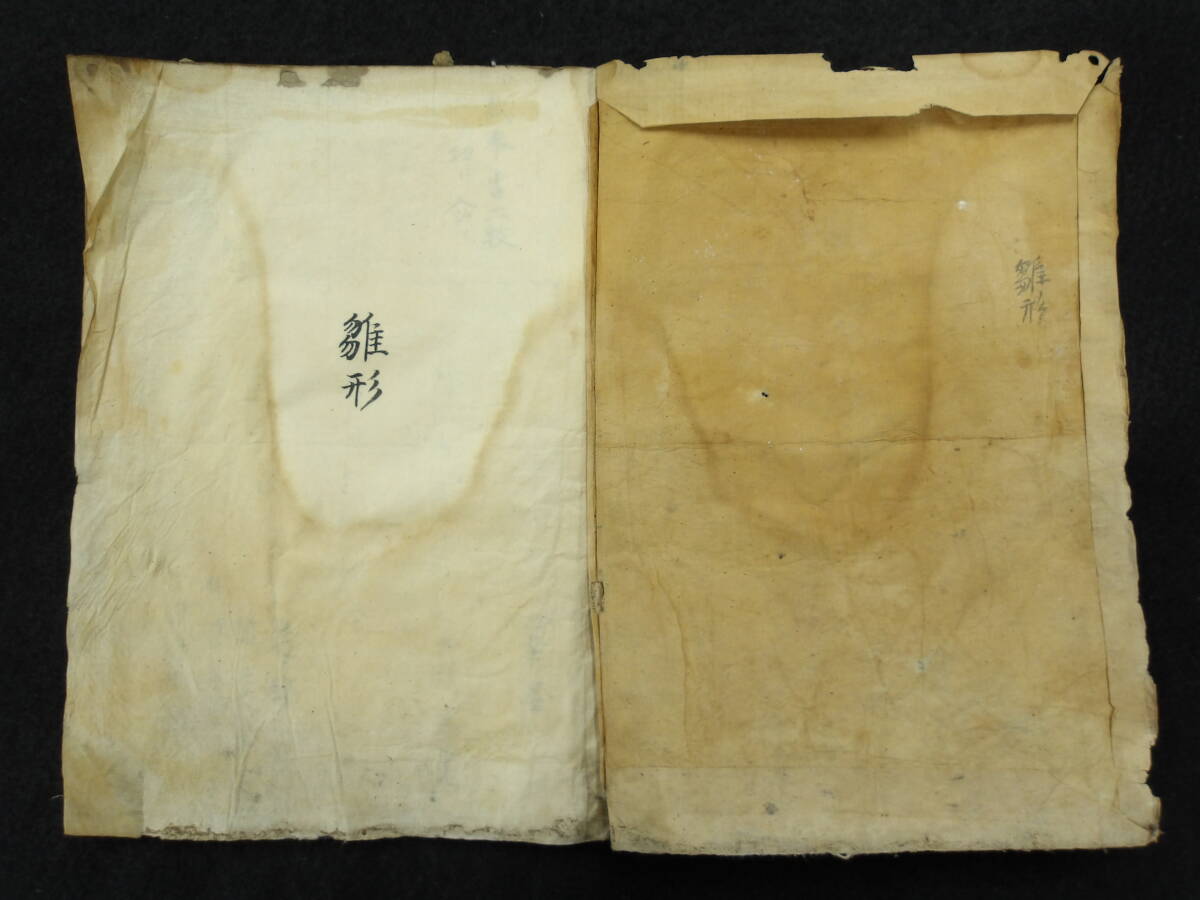 雛形
雛形